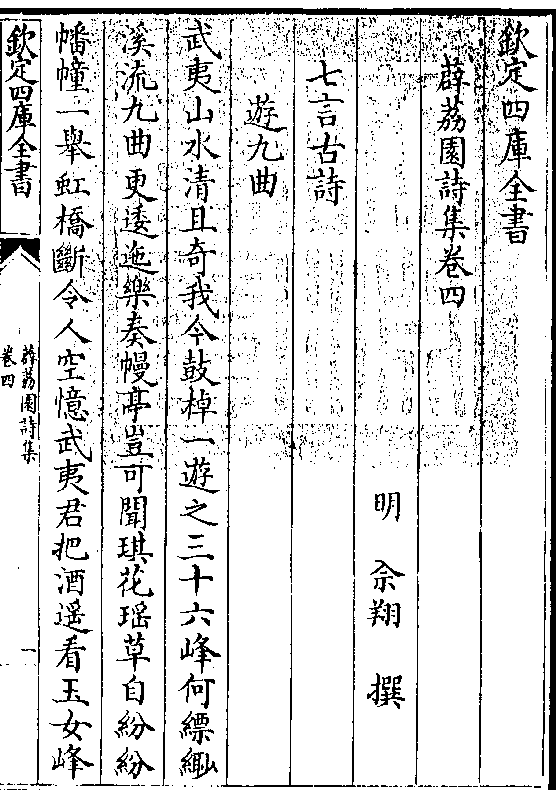 欽定四庫全書
薜荔園詩集卷四
明 佘翔 撰
七言古詩
遊九曲
武夷山水清且奇我今鼓棹一遊之三十六峰何縹緲
溪流九曲更逶迤樂奏幔亭豈可聞琪花瑶草自紛紛
幡幢一舉虹橋斷令人空憶武夷君把酒遥看玉女峰
欽定四庫全書
薜荔園詩集
卷四
一